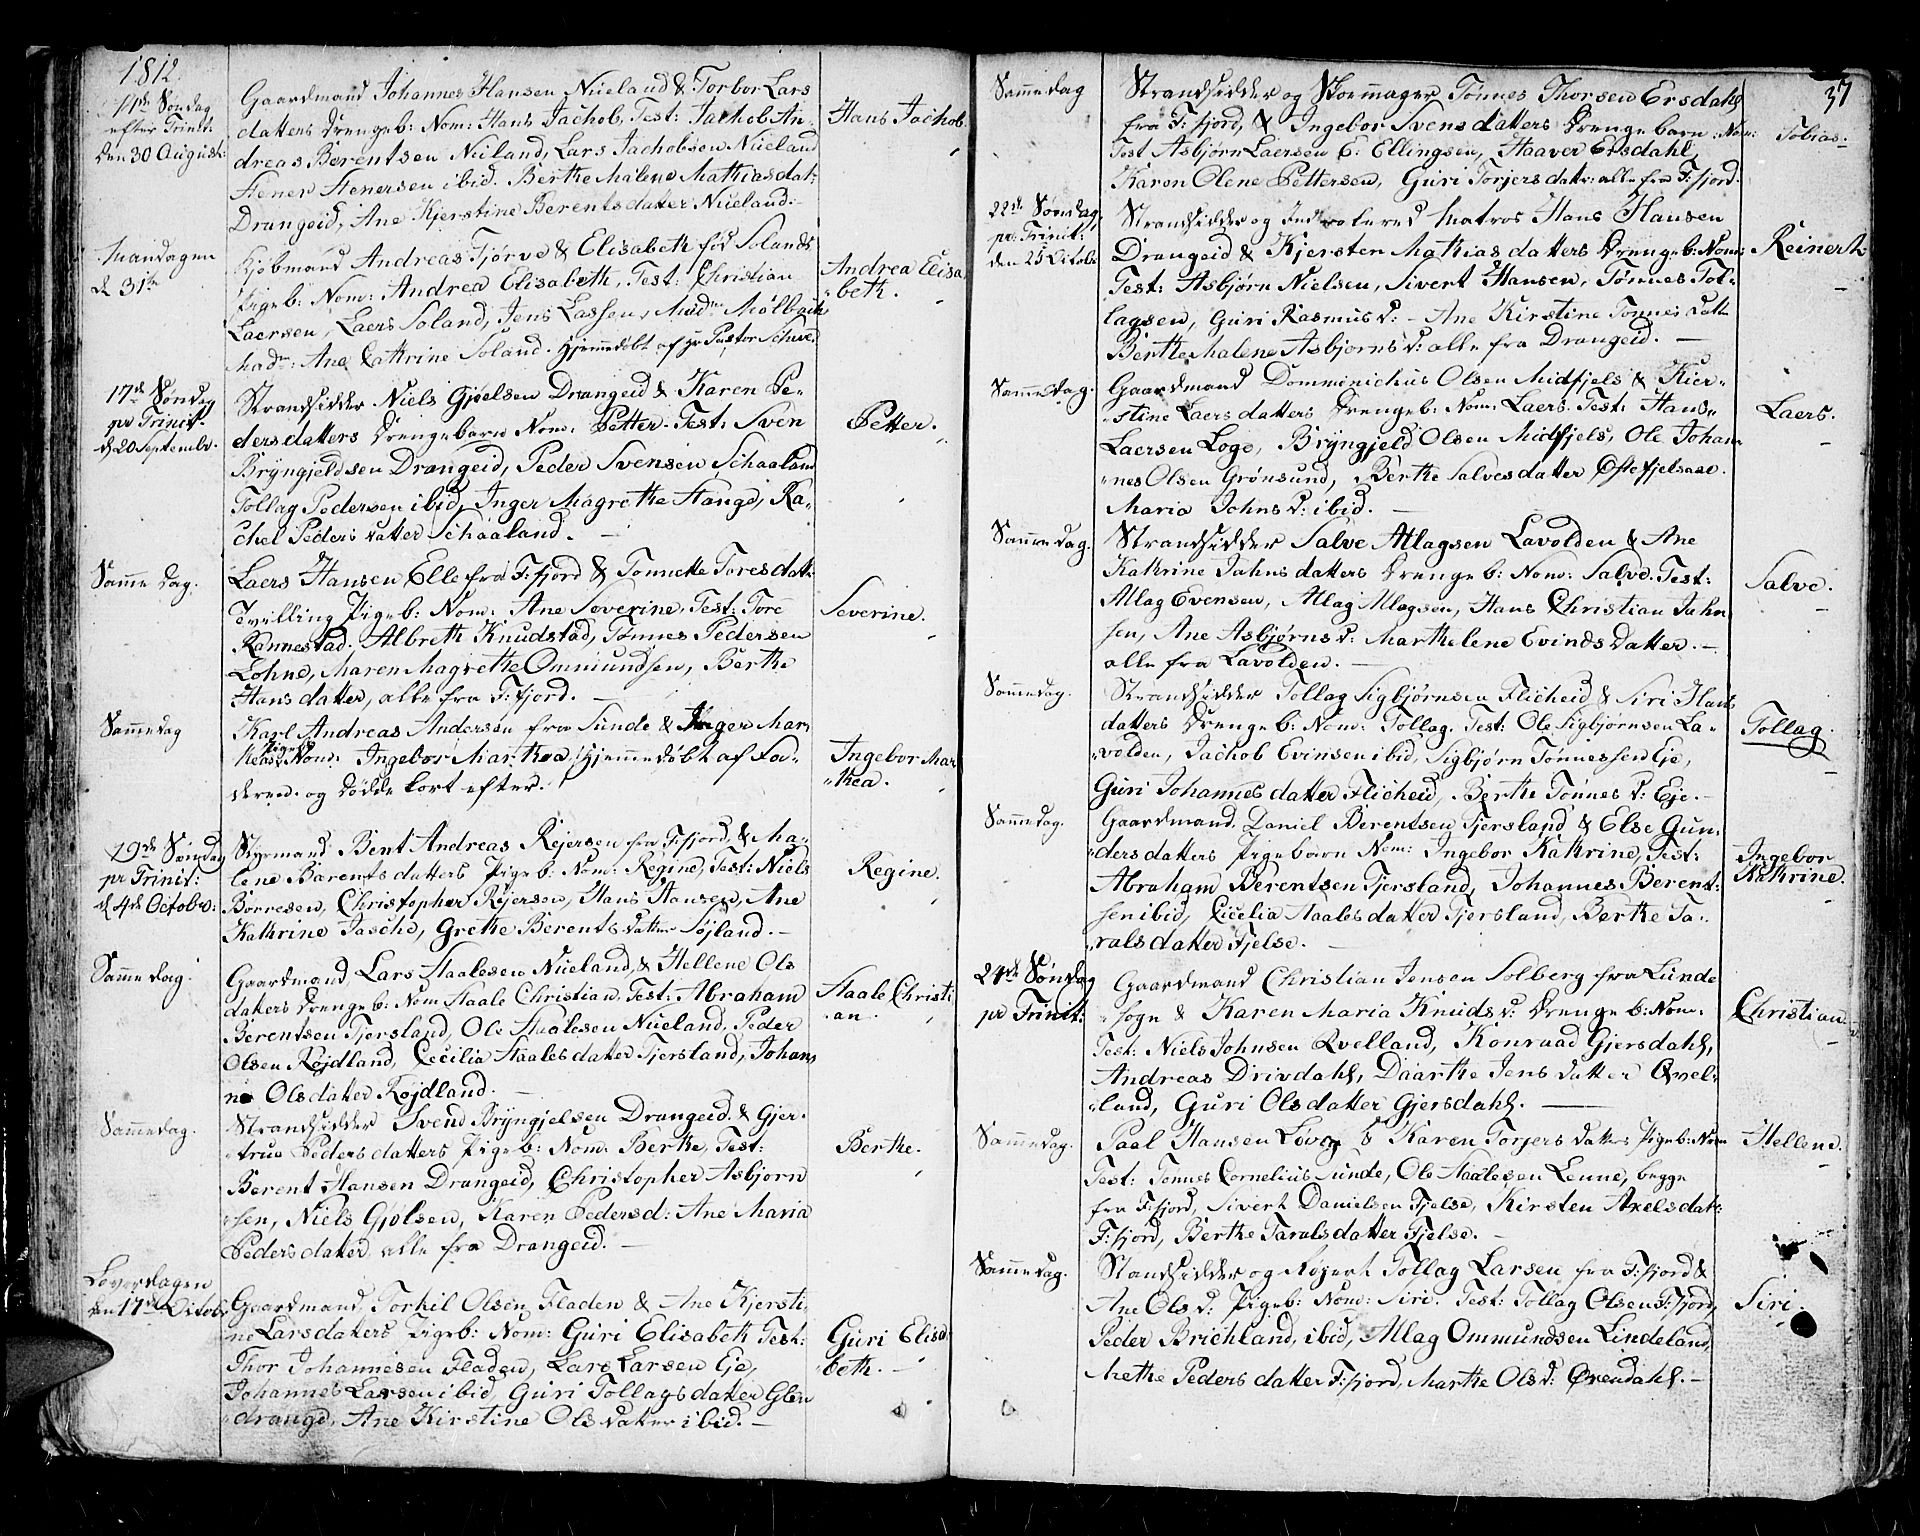 1812.
11te Søndag
efter Trinit:
den 30 August:
Gaardmand Johannes Hansen Nueland & Torbor Lars
datters Drengeb: Nom: Hans Jachob, Test: Jachob An-
dreas Berentsen Nüland, Lars Jachobsen Nueland
Stener Stenersen ibid. Berthe Malene Mathiasdat:
Drangeid, Ane Kjerstine Berentsdatter Nueland.
Hans Jachob
Mandagen
d 31te
Kjöbmand Andreas Tjørve & Elisabeth fød Solands
Pigeb: Nom: Andrea Elisabeth, Test: Christian
Laersen, Laers Soland, Jens Lassen, Madme Mölbach
Madm: Ane Cathrine Soland. Hjemmedöbt af Hr Pastor
Andrea Elisa
beth.
17de Søndag
pr Trinit.
d 20 Septembr.
Strandsidder Niels Gjøelsen Drangeid & Karen Pe-
dersdatters Drengebarn Nom: Petter. Test: Sven
Bryngjeldsen Drangeid, Peder Svensen Schaaland
Tollag Pedersen ibid, Inger Magrethe Stange, Ra-
chel Peders datter Schaaland. -
Petter.
Samme dag.
Laers Hansen Elle fra F:fjord & Tonnette Toresdatt:
Tvilling Pigeb: Nom: Ane Severine, Test: Tore
Rannestad, Albreth Knudstad, Tønnes Pedersen
Lohne, Maren Magrethe Ommundsen, Berthe
Hans datter, alle fra F:fjord. -
Severine.
Samme dag
Karl Andreas Andersen fra Sunde & Inger Mar
theas Pigeb: Nom: Ingebor Marthea, Hjemmedøbt af Fa-
deren og døde kort efter.
Ingebor Mar
thea.
19de Søndag
pr Trinit:
d 4de Octobr:
Styrmand Bent Andreas Rejersen fra F:fjord, & Ma-
lene Barents datters Pigeb: Nom: Regine, Test: Niels
Borresen, Christopher Rejersen, Hans Hansen, Ane
Kathrine Jasche, Grethe Berents datter Söjland. -
Regine.
Samme dag.
Gaardmand, Lars Staalesen Nueland, & Hellene Ols
datters Drengeb: Nom Staale Christian, Test: Abraham
Berentsen Tjersland, Ole Staalesen Nueland, Peder
Olsen Röjdland, Cecilia Staalesdatter Tjersland, Johan
ne Olsdatter Röjdland. -
Staale Christi
an.
Samme dag.
Strandsidder Svend Bryngjelsen Drangeid & Gjer-
true Pedersdatters Pigeb: Nom: Berthe, Test:
Berent Hansen Drangeid, Christopher Asbjørn
sen, Niels Gjølsen, Karen Pedersd: Ane Maria
Peders datter alle fra Drangeid. -
Berthe.
Löverdagen
den 17de Octobr
Gaardmand Torkil Olsen Fladen & Ane Kjersti-
ne Larsdatters Pigeb: Nom: Guri Elisabeth Test:
Thor Johannesen Fladen, Lars Larsen Eje,
Johannes Larsen ibid, Guri Tollagsdatter Glen
drange, Ane Kirstine Ols datter ibid. -
Guri Elisa
beth.
37
Samme dag
Strandsidder og Skoemager Tønnes Thorsen Ersdahl
fra F:fjord, & Ingebor Svens datters Drengebarn Nom:
Test Asbjørn Laersen E: Ellingsen, Haaver Ersdahl,
Karen Olene Pettersen, Guri Torjersdatter alle fra F:fjord.
Tobias.
22de Søndag
pr Trinit:
den 25 Octobr
Strandsidder og Indrolered Matros Hans Hansen
Drangeid & Kjersten Mathias datters Drengeb: Nom:
Test: Asbjørn Nielsen, Sivert Hansen, Tønnes Tol-
lagsen, Guri Rasmus d: - Ane Kirstine Tønnes datt
Berthe Malene Asbjorns d: alle fra Drangeid. -
Reinert.
Samme dag.
Gaardmand Domminichus Olsen Midfjels & Kier-
stine Laersdatters Drengeb: Nom: Laers. Test: Hans
Laersen Loge, Bryngjeld Olsen Midfjels, Ole Johan
nes Olsen Grønsund, Berthe Salvesdatter
Maria Johns d: ibid. -
Laers.
Samme dag.
Strandsidder Salve Atlagsen Lavolden & Ane
Kathrine Jahns datters Drengeb: Nom: Salve. Test:
Allag Evensen, Atlag Allagsen, Hans Christian Jahn
sen, Ane Asbjørns d: Marthelene Evinds datter. -
alle fra Lavolden. -
Salve.
Samme dag.
Strandsidder Tollag Sigbjørnsen Flicheid & Siri Hans
datters Drengeb: Nom: Tollag. Test: Ole Sigbjørnsen La-
volden, Jachob Evinsen ibid, Sigbjørn Tønnessen Eje,
Guri Johannes datter Flicheid, Berthe Tønnes d: Eje. -
Tollag.
Samme dag.
Gaardmand Daniel Berentsen Tjersland & Else Gun-
ders datters Pigebarn Nom: Ingebor Kathrine, Test:
Abraham Berentsen Tjersland, Johannes Berent-
sen ibid, Cicelia Staalesdatter Tjersland, Berthe Ta-
ralsdatter Fjelse. -
Ingebor
Kathrine.
24de Søndag
pr Trinit:
Gaardmand Christian Jensen Solberg fra Lunde
sogn & Karen Maria Knuds d: Drengeb: Nom:
Test: Niels Johnsen Qvelland, Konraad Gjersdahl,
Andreas Drivdahl, Daarthe Jens datter Qvel-
land, Guri Ols datter Gjersdahl. -
Christian.
Samme dag.
Paal Hansen Løvig & Karen Torjers datters Pigeb: Nom
Test: Tønnes Cornelius Sunde, Ole Staalesen Lenne, begge
fra F:fjord, Sivert Danielsen Fjelse, Kirsten Axelsdat:
F:fjord, Berthe Taralsdatter Fjelse. -
Hellene.
Samme dag.
Standsidder og Tollag Larsen fra F:fjord &
Ane Ols d: Pigeb: Nom: Siri. Test: Tollag Olsen F:fjord,
Peder Brichland, ibid, Allag Ommundsen Lindeland,
Methe Peders datter F:fjord, Marthe Ols d: Ørendahl. -
Siri.